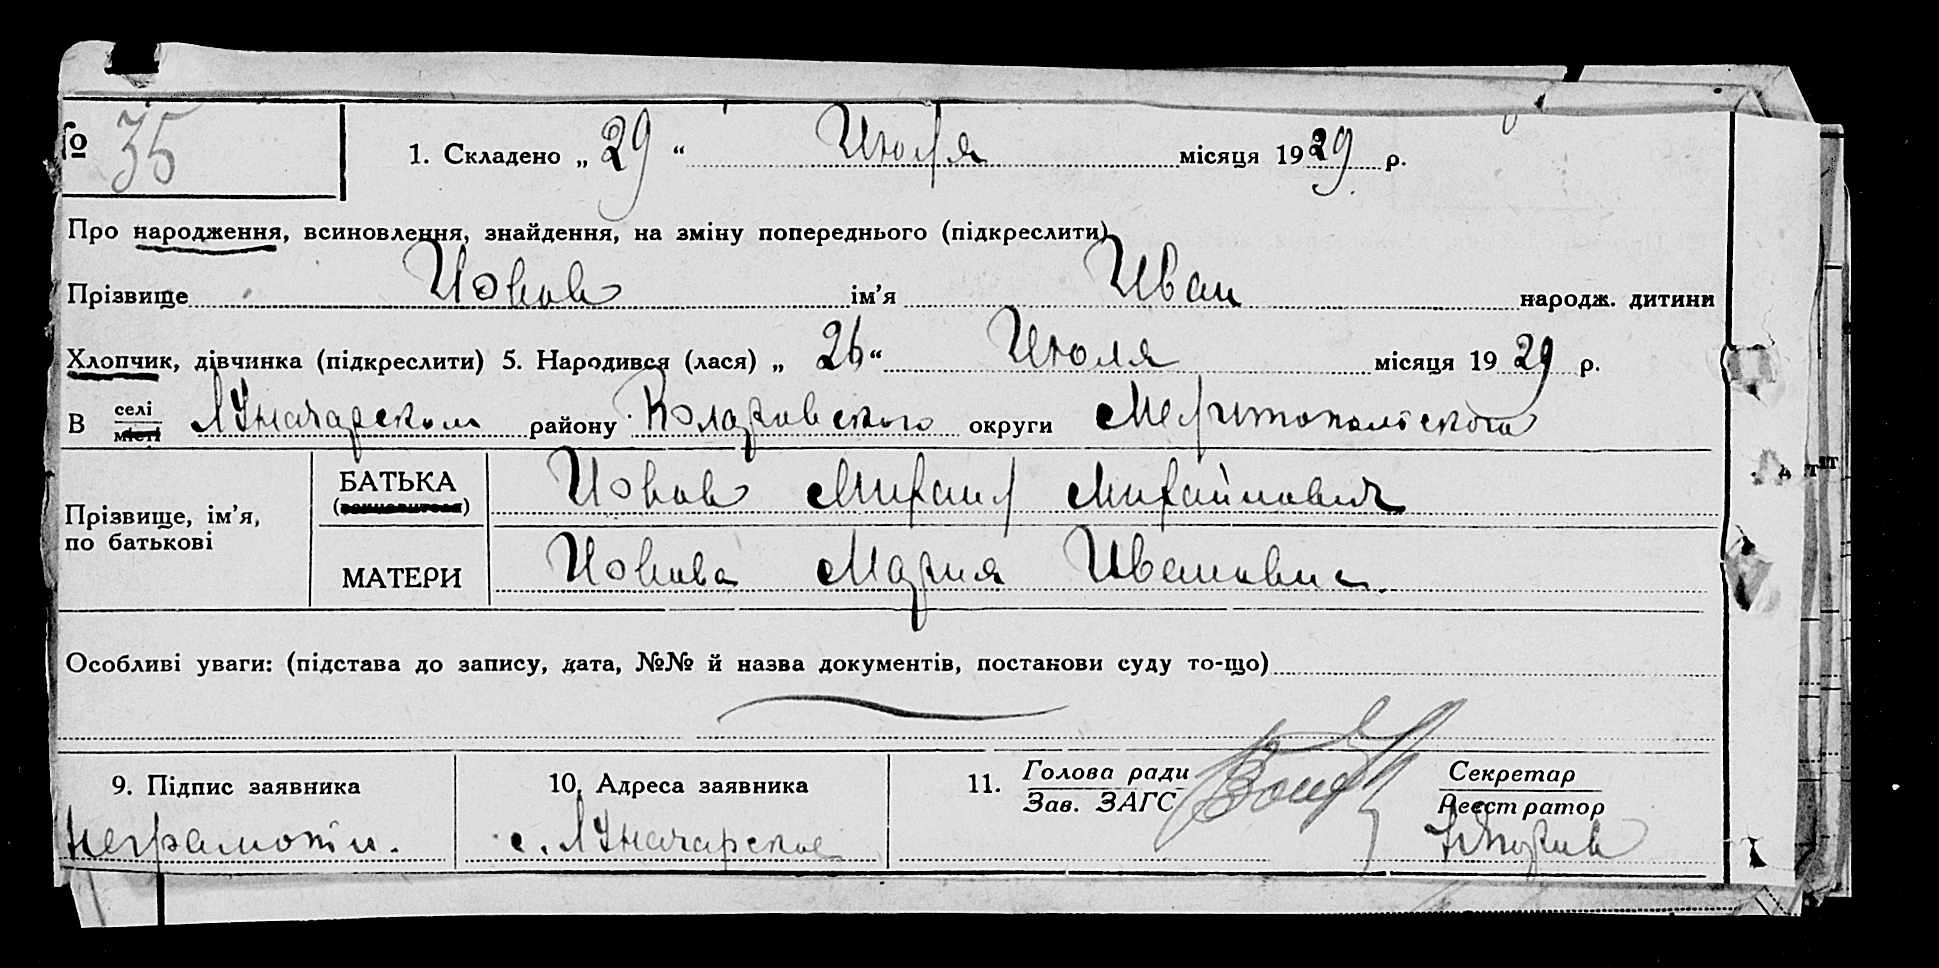 № 35
1. Складено „ 29 “ Июля місяця 1929 р.
Про народження, всиновлення, знайдення, на зміну попереднього (підкреслити)
Прізвище Иовов ім’я Иван народж. дитини
Хлопчик, дівчинка (підкреслити) 5. Народився (лася) „ 26 “ Июля місяця 1929 р.
В селі місті Луначарском району Коларовского округи Мелитопольского
Прізвище, ім’я, по батькові
БАТЬКА
Иовов Михаил Михайлович
МАТЕРИ
Иовова Мария Ивановна
Особливі уваги: (підстава до запису, дата, №№ й назва документів, постанови суду то-що)
9. Підпис заявника
неграмотн.
10. Адреса заявника
с. Луначарское
11. Голова ради
Зав. ЗАГС
Секретар
Реестратор